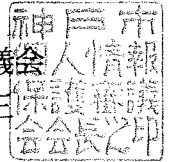 神戸市
議会
人情報
保護審議
会会長之印